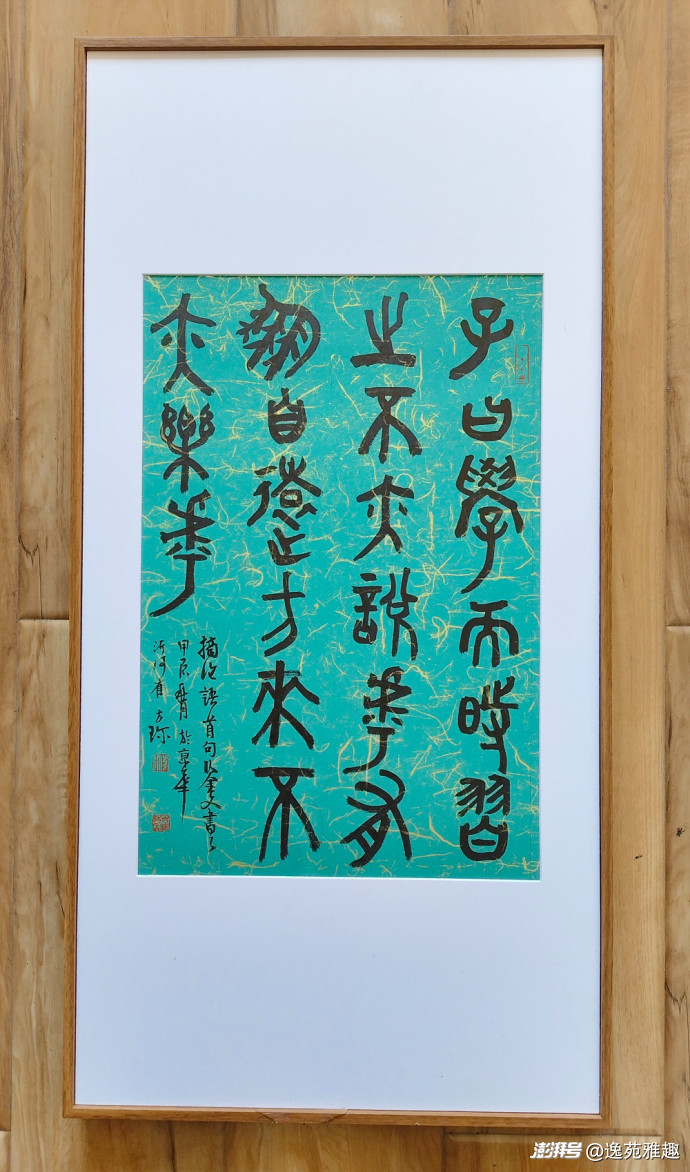 子曰學而時習
之不亦說乎有
朋自遠方來不
亦樂乎
摘论語首句以金文書之
甲辰月於京華
沂河
澎湃号@逸苑雅趣